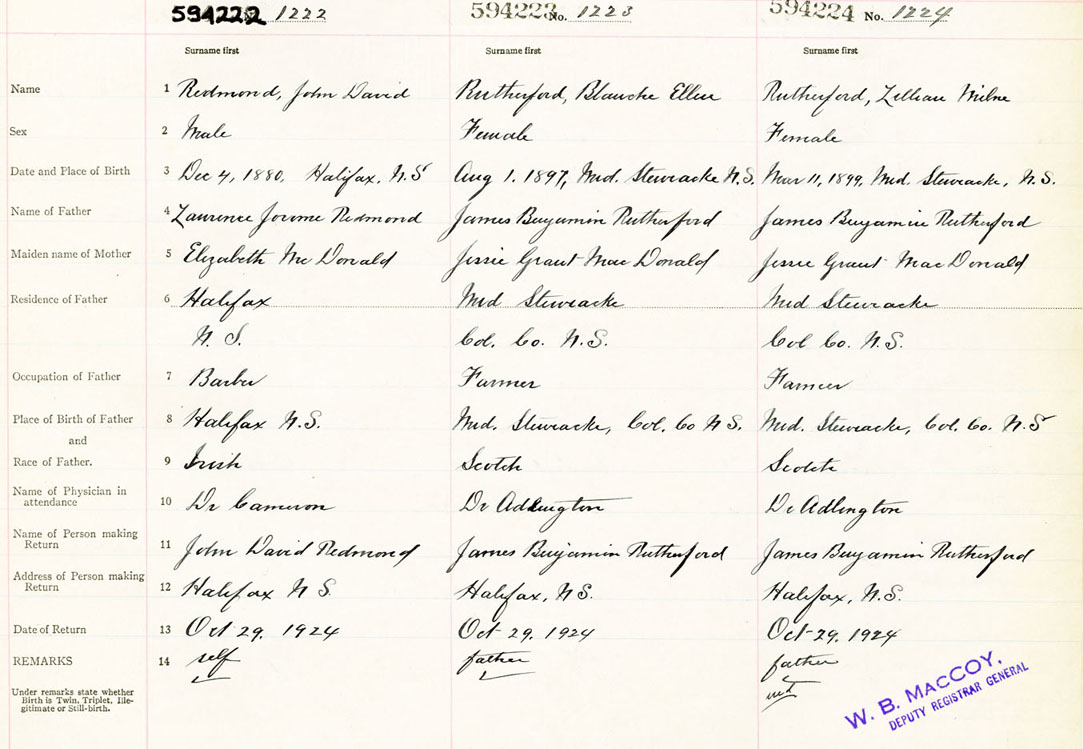 594222 1222 594223 No. 1223 594224 No. 1224
Surname first Surname first Surname first
Name 1 Redmond, John David Rutherford, Blanche Ellen Rutherford, Lillian Milne
Sex 2 Male Female Female
Date and Place of Birth 3 Dec 4, 1880, Halifax, N.S Aug 1. 1897, Mid. Stewiacke N.S. Mar 11, 1899, Mid. Stewiacke, N.S.
Name of Father 4 Laurence Jerome Redmond James Benjamin Rutherford James Benjamin Rutherford
Maiden name of Mother 5 Elizabeth Mc Donald Jessie Grant Mac Donald Jessie Grant Mac Donald
Residence of Father 6 Halifax Mid Stewiacke Mid Stewiacke
N. S. Col. Co. N.S. Col Co. N.S.
Occupation of Father 7 Barber Farmer Farmer
Place of Birth of Father 8 Halifax N.S. Mid. Stewiacke, Col. Co N S. Mid. Stewiacke, Col. Co. N.S
and
Race of Father. 9 Irish Scotch Scotch
Name of Physician in
attendance 10 Dr Cameron Dr Adlington Dr Adlington
Name of Person making
Return 11 John David Redmond James Benjamin Rutherford James Benjamin Rutherford
Address of Person making
Return 12 Halifax N S. Halifax, N S. Halifax, N.S.
Date of Return 13 Oct 29, 1924 Oct 29, 1924 Oct 29, 1924
REMARKS 14 self father father
Under remarks state whether
Birth is Twin, Triplet, Ille-
gitimate or Still-birth.
W. B. MACCOY,
DEPUTY REGISTRAR GENERAL